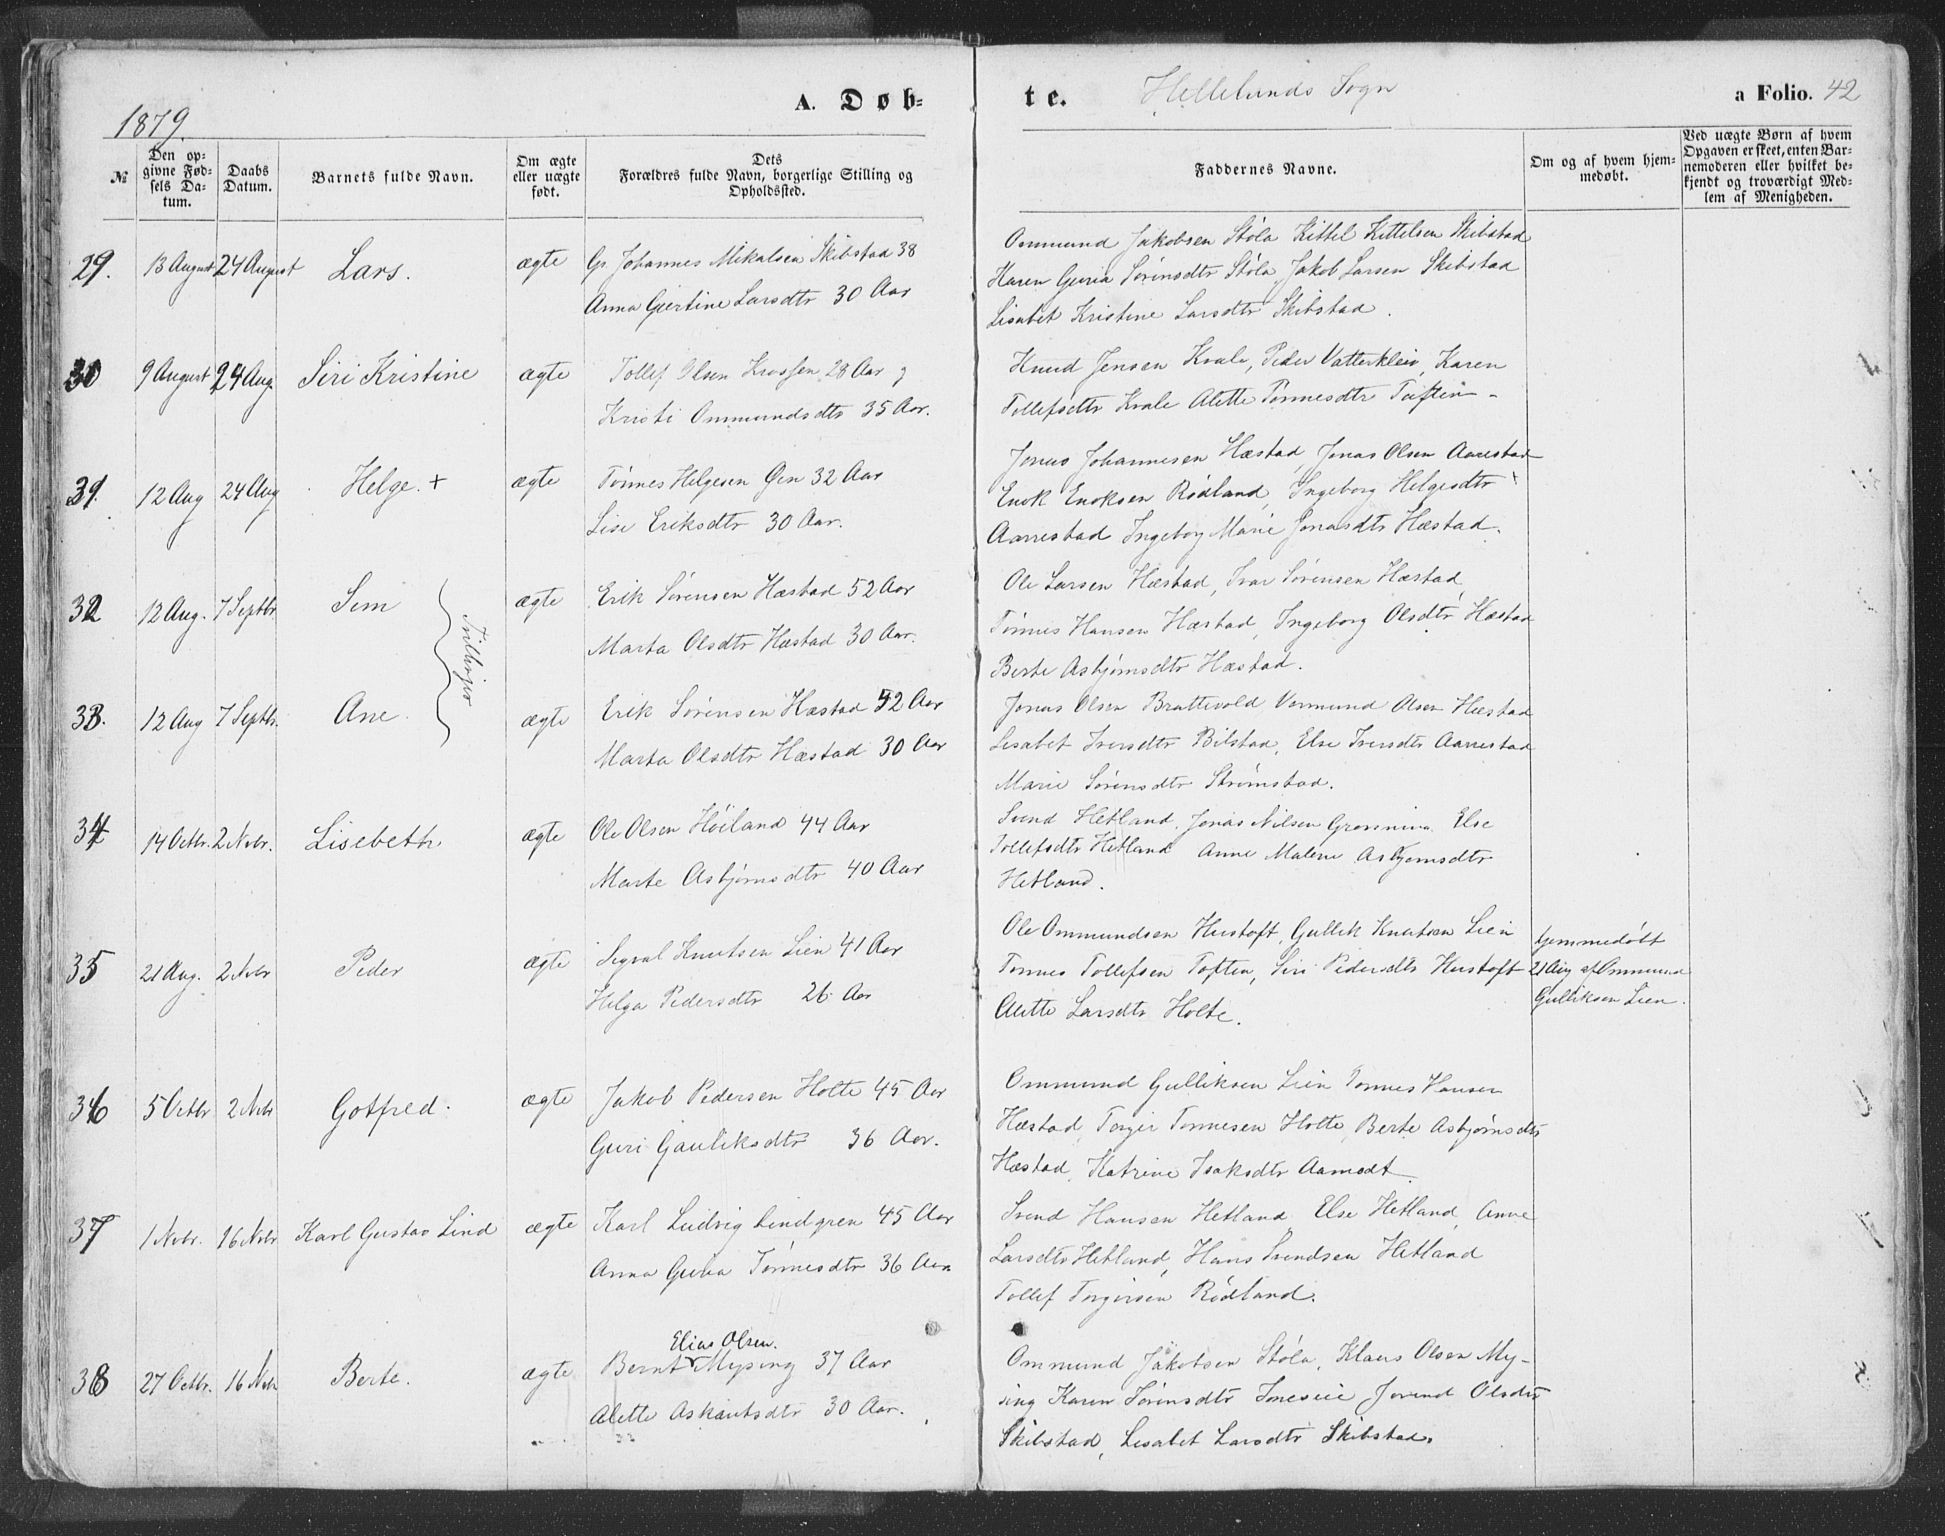 1879.
A. Døb-
te.
Hellelands Sogn
a Folio. 42
№
Den op-
givne Fød-
sels Da-
tum.
Daabs
Datum.
Barnets fulde Navn.
Om ægte
eller uægte
født.
Dets
Forældres fulde Navn, borgerlige Stilling og
Opholdssted.
Faddernes Navne.
Om og af hvem hjem-
medøbt.
Ved uægte Børn af hvem
Opgaven er skeet, enten Bar-
nemoderen eller hvilket be-
kjendt og troværdigt Med-
lem af Menigheden.
29. 13 August 24 August Lars. ægte Gr. Johannes Mikalsen Skibstad 38
Anna Gjertine Larsdtr 30 Aar
Ommund Jakobsen Støla Kittil Kittelsen Skibstad
Karen Guria Sørinsdtr Støla, Jakob Larsen Skibstad
Lisabet Kristine Larsdtr Skibstad.
30 9 August 24 Aug. Siri Kristine ægte Tollef Olsen Krossen 28 Aar
Kristi Ommundsdtr 35 Aar.
Knud Jensen Kvale, Peder Vatterkleiv, Karen
Tollefsdtr Kvale Alette Tønnesdtr Tuftin
31. 12 Aug 24 Aug Helge. + ægte Tønnes Helgesen Øen 32 Aar
Lise Eriksdtr 30 Aar.
Jonas Johannesen Hæstad, Jonas Olsen Aarrestad
Enok Enoksen Rødland, Ingeborg Helgesdtr
Aarrestad Ingeborg Marie Jonasdtr Hæstad.
32 12 Aug. 7 Septbr Sem ægte Erik Sørensen Hæstad 52 Aar
Marta Olsdtr Hæstad 30 Aar.
Tvillinger
Ole Larsen Hæstad, Ivar Sørensen Hæstad,
Tønnes Hansen Hæstad, Ingeborg Olsdtr Hæstad
Berte Asbjørnsdtr Hæstad.
33. 12 Aug 7 Septbr. Ane. ægte Erik Sørensen Hæstad 52 Aar
Marta Olsdtr Hæstad 30 Aar
Jonas Olsen Brattevold Vermund Olsen Hæstad
Lisabet Iversdtr Bilstad, Else Iversdtr Aarrestad
Marie Sørensdtr Strømstad.
34 14 Octbr. 2 Novbr. Lisebeth ægte Ole Olsen Høiland 44 Aar
Marte Asbjørnsdtr 40 Aar
Svend Hetland, Jonas Nilsen Grønning Else
Tollefsdtr Hetland Anne Malene Asbjørnsdtr
Hetland.
35 21 Aug. 2 Novbr Peder ægte Sigval Knutsen Lien 41 Aar
Helga Pedersdtr 26 Aar
Ole Ommundsen Hustoft, Gullik Knutsen Lien
Tønnes Tollefsen Toften, Siri Pedersdtr Hustoft
Alette Larsdtr Holte.
hjemmedøbt
21 Aug af Ommund
Gulliksen Lien.
36 5 Octbr 2 Nvbr Gotfred. ægte Jakob Pedersen Holte 45 Aar
Guri Gauliksdtr 36 Aar.
Ommund Gulliksen Lien Tønnes Hansen
Hæstad, Torger Tønnesen Holte, Berte Asbjørnsdtr
Hæstad, Katrine Isaksdtr Aamodt
37 1 Nvbr. 16 Nvbr Karl Gustav Lind ægte Karl Ludvig Lindgren 45 Aar
Anna Guria Tønnesdtr 36 Aar
Svend Hansen Hetland Else Hetland, Anne
Larsdtr Hetland, Hans Svendsen Hetland
Tollef Torgersen Rødland.
38 27 Octbr. 16 Nvbr Berte. ægte Bernt Elias Olsen. Mysing 37 Aar
Alette Askautsdtr 30 Aar.
Ommund Jakobsen Støla, Klaus Olsen My-
sing Karen Sørinsdtr Joneseie Jorend Olsdtr
Skibstad, Lisabet Larsdtr Skibstad.